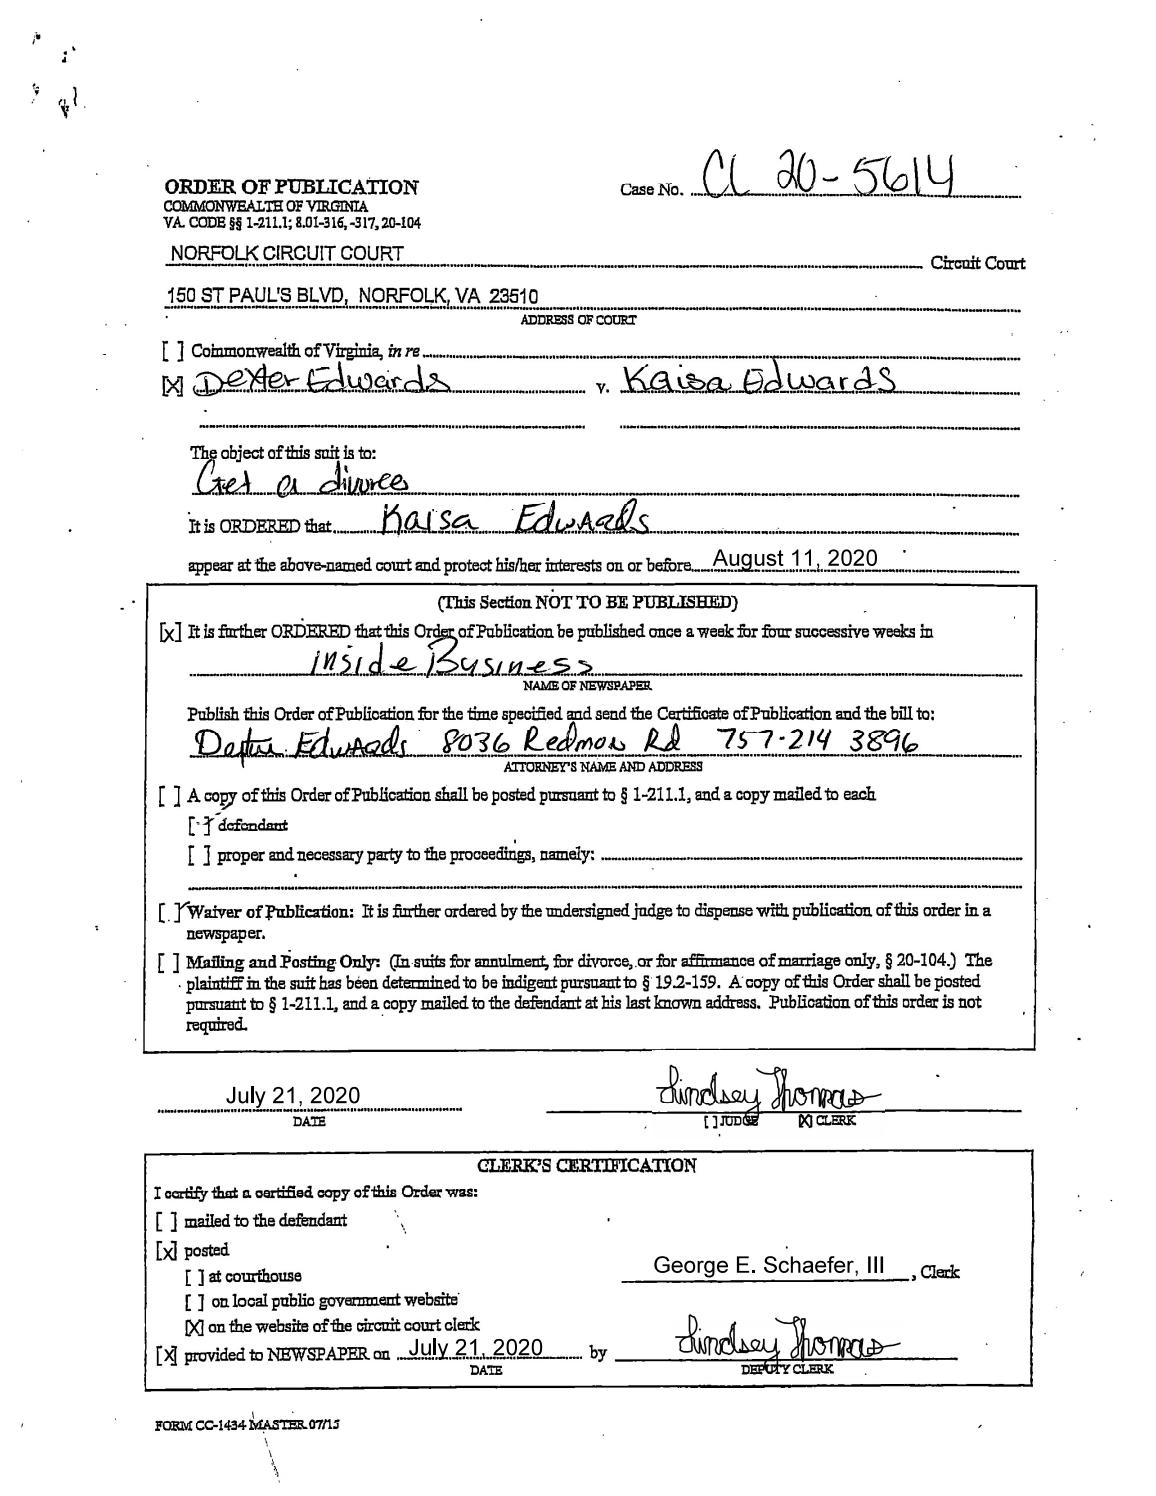 ORDER OF PUBLICATION
Case No. CL 20-5614
COMMONWEALTH OF VIRGINIA
VA. CODE §§ 1-211.1; 8.01-316, -317, 20-104
NORFOLK CIRCUIT COURT Circuit Court
150 ST PAUL'S BLVD, NORFOLK, VA 23510
ADDRESS OF COURT
[ ] Commonwealth of Virginia, in re
[X] Dexter Edwards v. Kaisa Edwards
The object of this suit is to:
Get a divorce
It is ORDERED that Kaisa Edwards
appear at the above-named court and protect his/her interests on or before August 11, 2020
(This Section NOT TO BE PUBLISHED)
[X] It is further ORDERED that this Order of Publication be published once a week for four successive weeks in
inside Business
NAME OF NEWSPAPER
Publish this Order of Publication for the time specified and send the Certificate of Publication and the bill to:
Dexter Edwards 8036 Redmon Rd 757-214 3896
ATTORNEY'S NAME AND ADDRESS
[ ] A copy of this Order of Publication shall be posted pursuant to § 1-211.1, and a copy mailed to each
[ ] defendant
[ ] proper and necessary party to the proceedings, namely:
[ ] Waiver of Publication: It is further ordered by the undersigned judge to dispense with publication of this order in a
newspaper.
[ ] Mailing and Posting Only: (In suits for annulment, for divorce, or for affirmance of marriage only, § 20-104.) The
plaintiff in the suit has been determined to be indigent pursuant to § 19.2-159. A copy of this Order shall be posted
pursuant to § 1-211.1, and a copy mailed to the defendant at his last known address. Publication of this order is not
required.
July 21, 2020 Lindsey Thomas
DATE [ ] JUDGE [X] CLERK
CLERK'S CERTIFICATION
I certify that a certified copy of this Order was:
[ ] mailed to the defendant
[X] posted
George E. Schaefer, III, Clerk
[ ] at courthouse
[ ] on local public government website
[X] on the website of the circuit court clerk
[X] provided to NEWSPAPER on July 21, 2020 by Lindsey Thomas
DATE DEPUTY CLERK
FORM CC-1434 MASTER 07/15